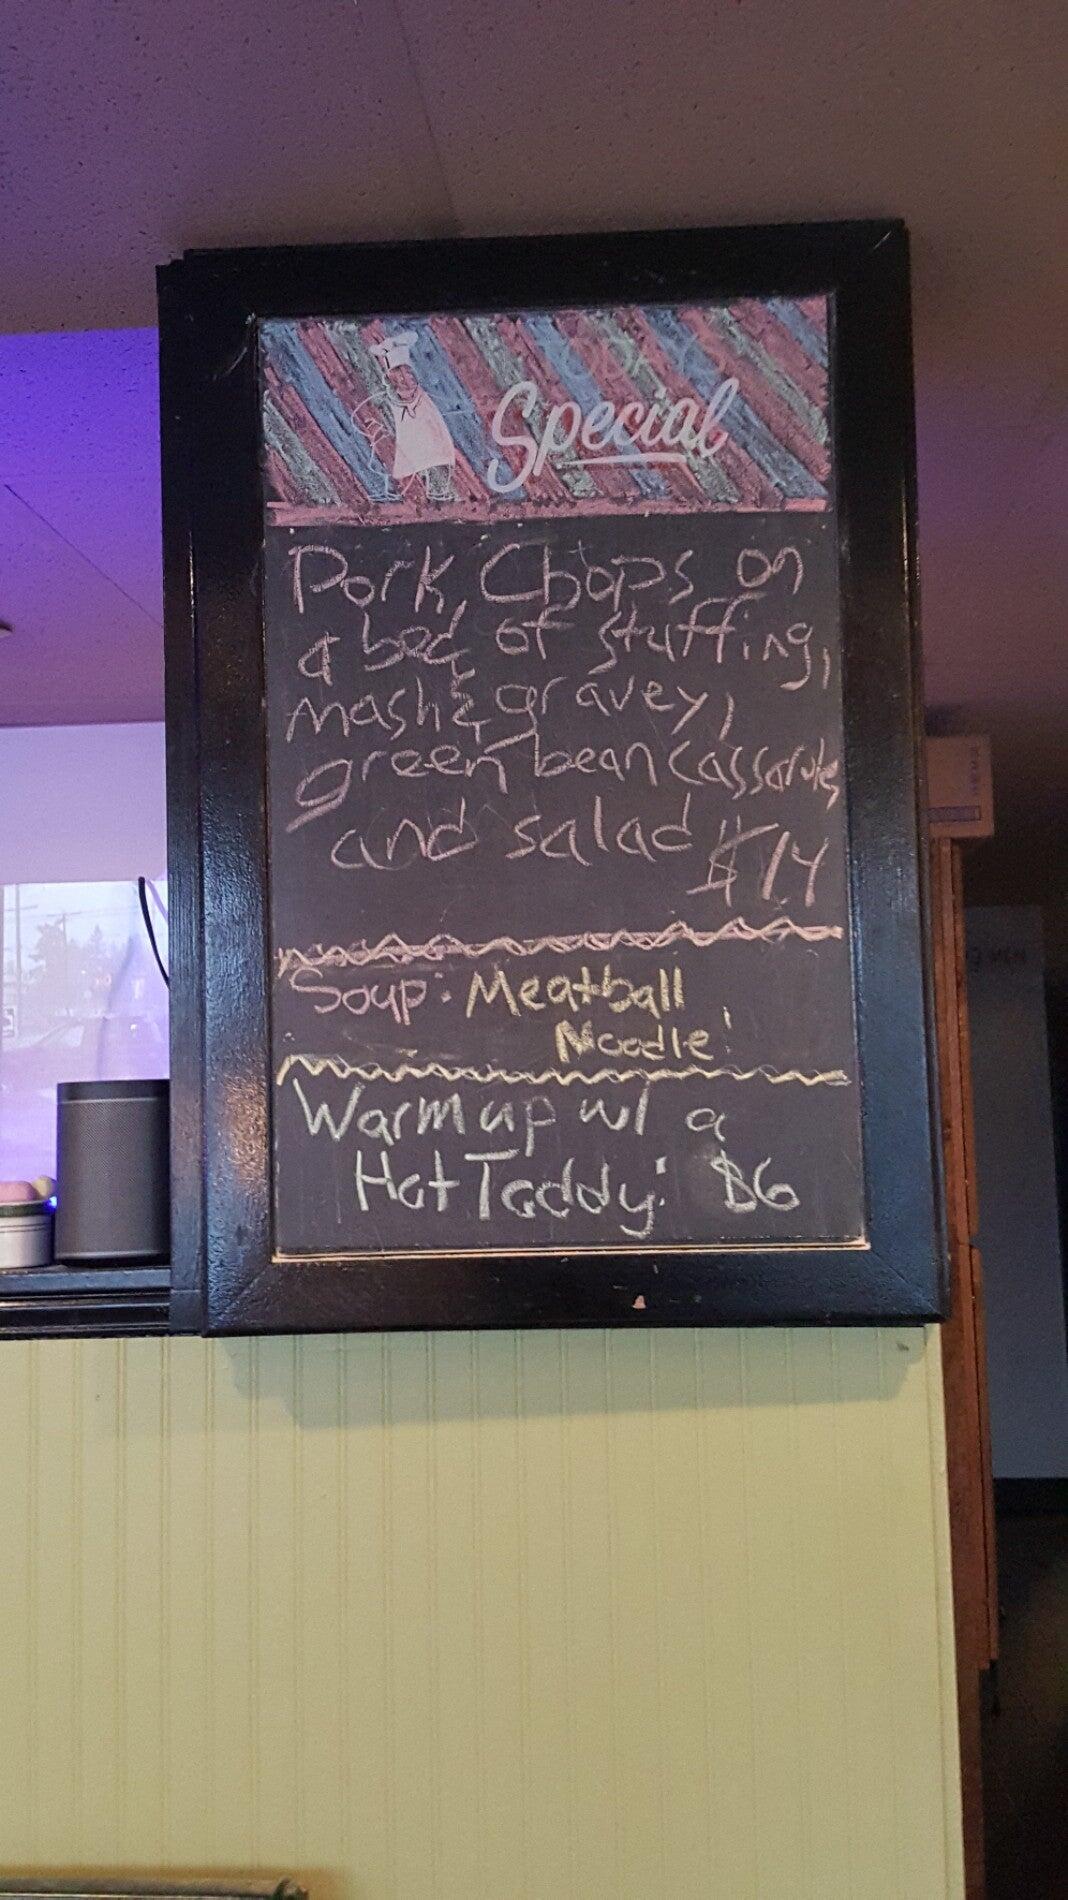 Special
Pork Chops on
a bed of stuffing,
mash & gravey,
green bean cassarole
and salad $14
Soup: Meatball
Noodle!
Warm up w/ a
Hot Taddy: $6